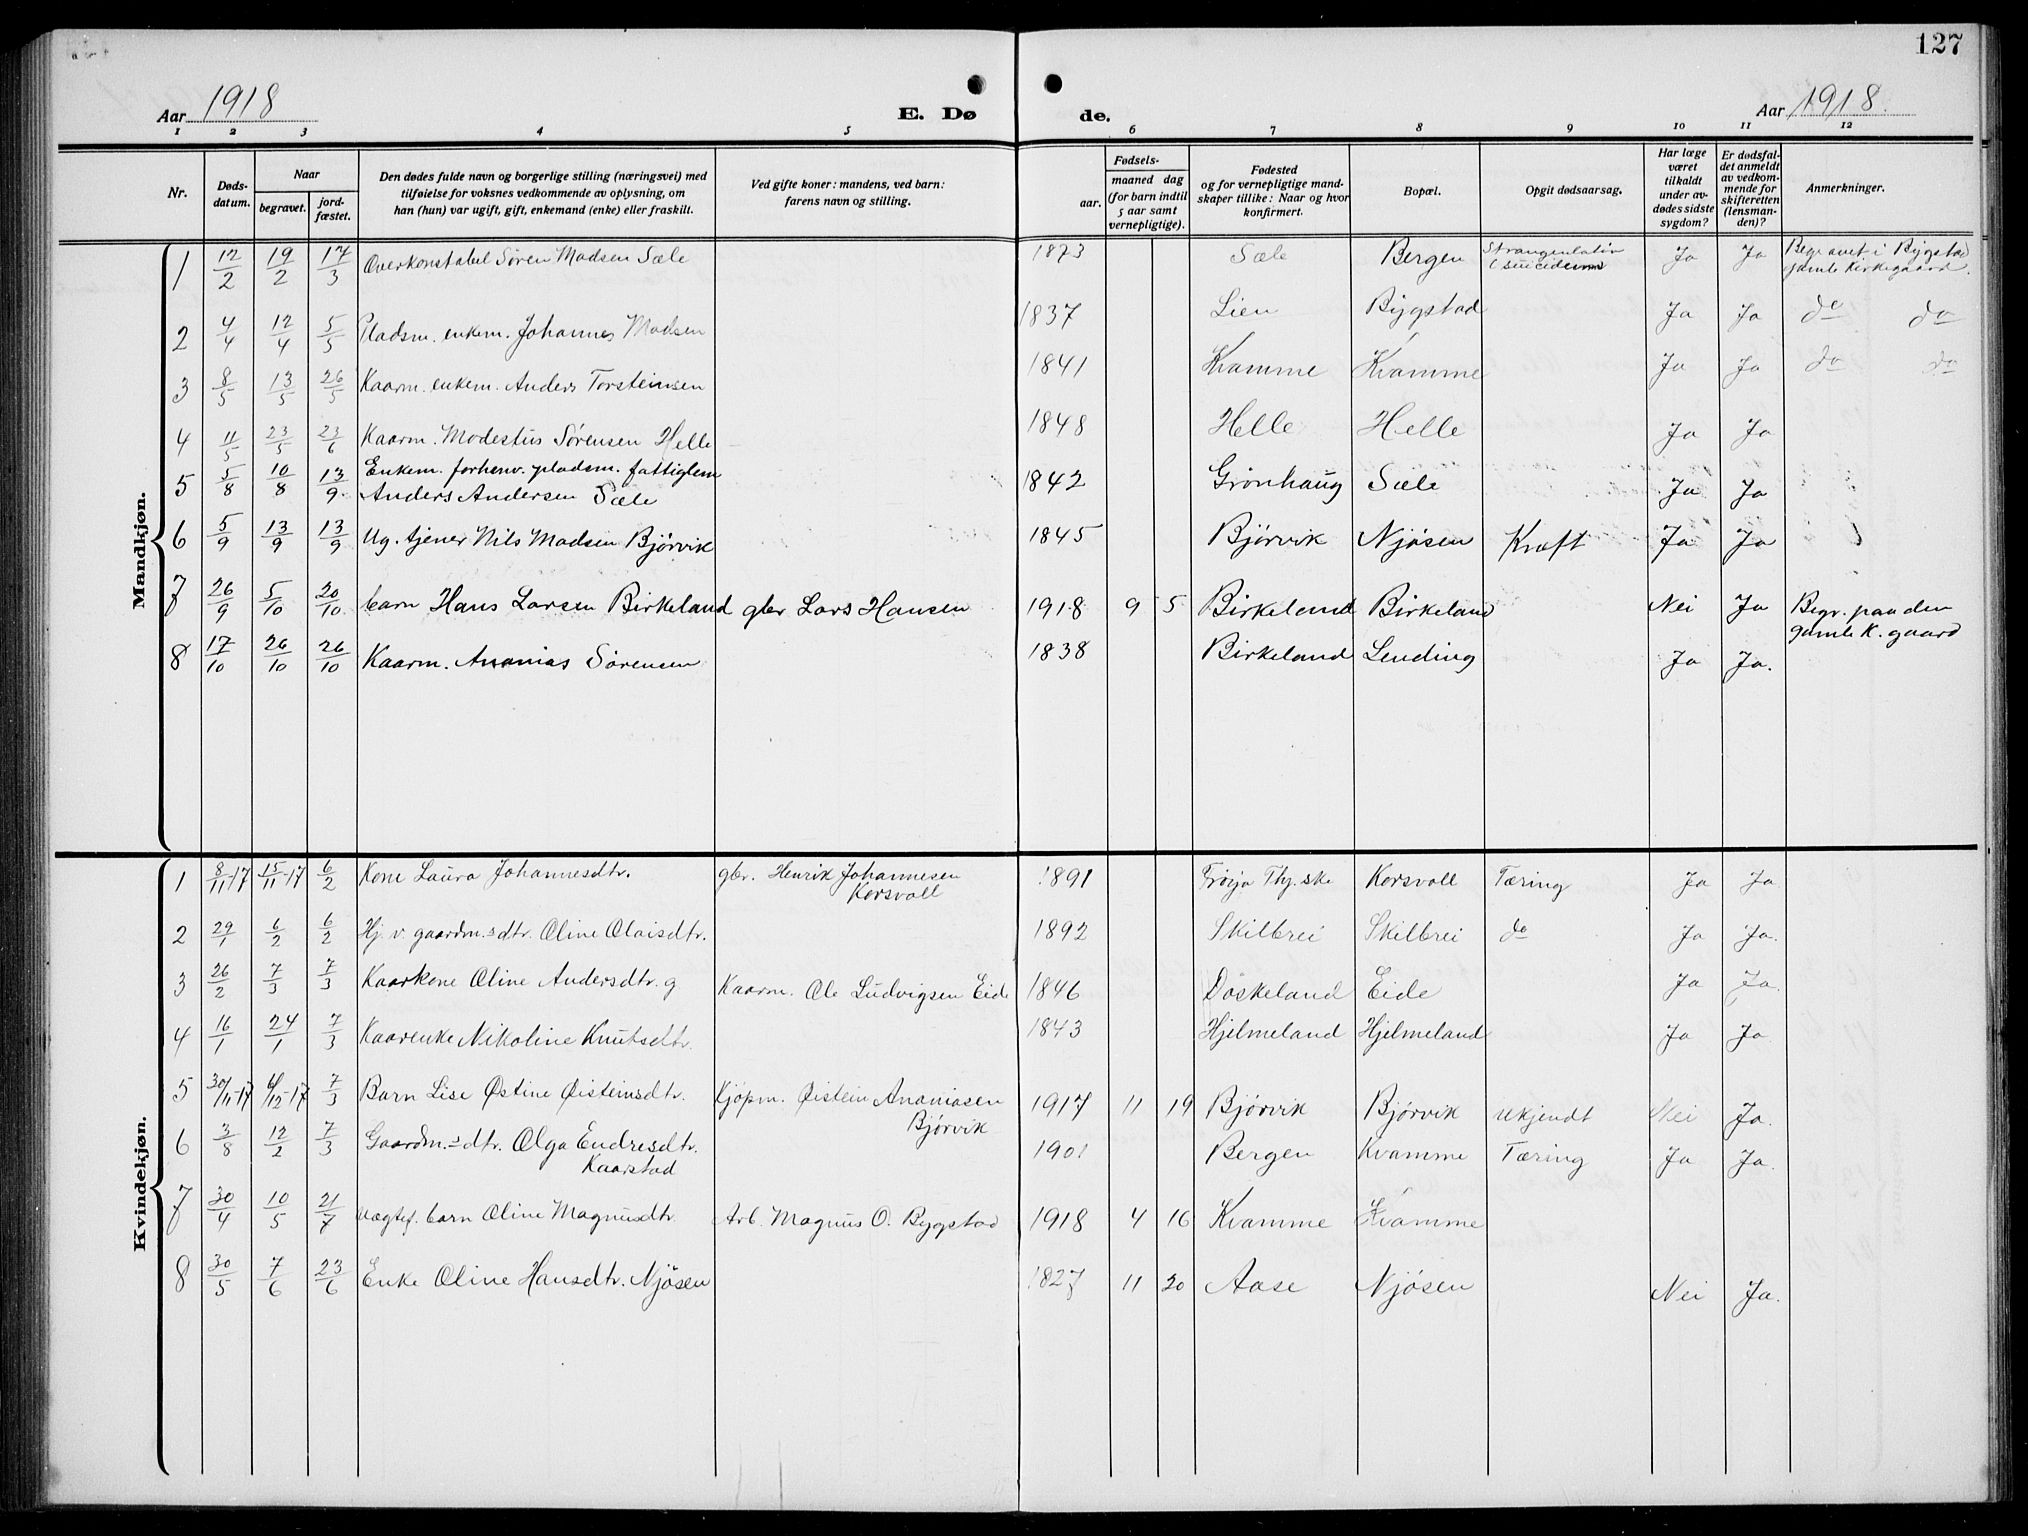 127
Aar 1918 E. Dø de. Aar 1918.
1 2 3 4 5 6 7 8 9 10 11 12
Nr. Døds-datum. Naar begravet. jord-fæstet. Den dødes fulde navn og borgerlige stilling (næringsvei) med tilføielse for voksnes vedkommende av oplysning, om han (hun) var ugift, gift, enkemand (enke) eller fraskilt. Ved gifte koner: mandens, ved barn: farens navn og stilling. Fødsels- aar. maaned dag (for barn indtil 5 aar samt vernepligtige). Fødested og for vernepligtige mandskaper tillike: Naar og hvor konfirmert. Bopæl. Opgit dødsaarsag. Har læge været tilkaldt under avdødes sidste sygdom? Er dødsfaldet anmeldt av vedkommende for skifteretten (lensmanden)? Anmerkninger.
Mandkjøn.
1 12/2 19/2 17/3 Overkonstabel Søren Madsen Sæle 1873 Sæle Bergen Strangenlatiov (suicidium) Ja Ja Begravet i Bygstad gamle Kirkegaard.
2 4/4 12/4 5/5 Pladsm. enkem. Johannes Madsen 1837 Lien Bygstad Ja Ja do do
3 8/5 13/5 26/5 Kaarm. enkem. Anders Torsteinsen 1841 Kvamme Kvamme Ja Ja do do
4 11/5 23/5 23/6 Kaarm. Modestus Sørensen Helle 1848 Helle Helle Ja Ja
5 5/8 10/8 13/9 Enkem. forhenv. pladsm. fattiglem
Anders Andersen Sæle 1842 Grønhaug Sæle Ja Ja
6 5/9 13/9 13/9 Ug. tjener Nils Madsen Bjørvik 1845 Bjørvik Njøsen Kræft Ja Ja
7 26/9 5/10 20/10 barn Hans Larsen Birkeland gbr Lars Hansen 1918 9 5 Birkeland Birkeland Nei Ja Begr. paa den gamle K. gaard
8 17/10 26/10 26/10 Kaarm. Ananias Sørensen 1838 Birkeland Lending Ja Ja.
Kvindekjøn.
1 8/11-17 15/11-17 6/2 Kone Laura Johannesdtr. gbr. Henrik Johannesen Korsvoll 1891 Frøyja Korsvoll Tæring Ja Ja
2 29/1 6/2 6/2 Hj. v. gaardm.s dtr. Oline Olaisdtr. 1892 Skilbrei Skilbrei do Ja Ja.
3 26/2 7/3 7/3 Kaarkone Oline Andersdtr. g Kaarm. Ole Ludvigsen Eide 1846 Døskeland Eide Ja Ja.
4 16/1 24/1 7/3 Kaarenke Nikoline Knutsdtr. 1843 Hjelmeland Hjelmeland Ja Ja
5 30/11-17 6/12-17 7/3 Barn Lise Østine Øisteinsdtr. Kjøpm. Øistein Ananiasen Bjørvik 1917 11 19 Bjørvik Bjørvik Ukjendt Nei Ja.
6 3/8 12/2 7/3 Gaardm.s dtr. Olga Endresdtr. Kaarstad 1901 Bergen Kvamme Tæring Ja Ja.
7 30/4 10/5 21/7 Uægtef. barn Oline Magnusdtr. Arb. Magnus O. Bygstad 1918 4 16 Kvamme Kvamme
8 30/5 7/6 23/6 Enke Oline Hansdtr. Njøsen 1827 11 20 Aase Njøsen Nei Ja.